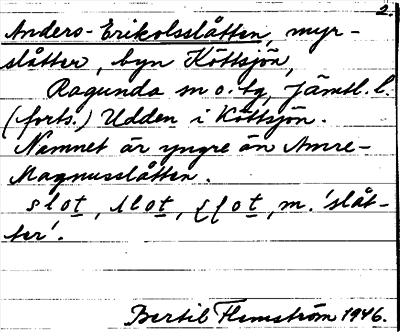 2.
Anders-Erikolsslåtten, myr-
slåtter, byn Köttsjön,
Ragunda sn o. tg, Jämtl. l.
(forts.) Udden i Köttsjön.
Namnet är yngre än Amre-
Magnusslåtten.
slot, m. 'slåt-
ter'.
Bertil Flemström 1946.